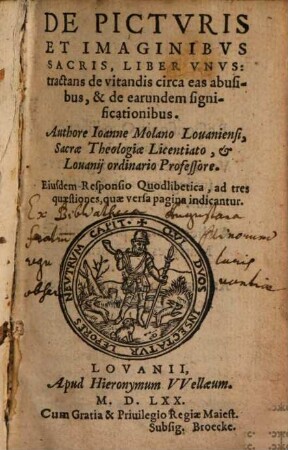 DE PICTVRIS
ET IMAGINIBVS
SACRIS, LIBER VNVS:
tractans de vitandis circa eas abusi-
bus, & de earundem signi-
ficationibus.
Authore Ioanne Molano Louaniensi,
Sacræ Theologiæ Licentiato, &
Louanij ordinario Professore.
Eiusdem Responsio Quodlibetica, ad tres
quæstiones, quæ versa pagina indicantur.
Ex Bibliotheca Augustana
NEVTRVM CAPIT. QVI DVOS INSECTATVR LEPORES
LOVANII,
Apud Hieronymum VVellæum.
M. D. LXX.
Cum Gratia & Priuilegio Regiæ Maiest.
Subsig. Broecke.